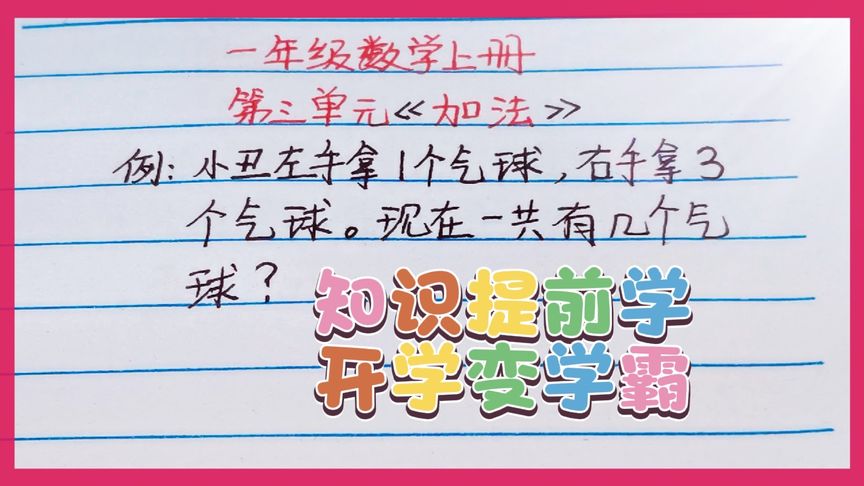 一年级数学上册
第三单元《加法》
例：小丑左手拿1个气球，右手拿3
个气球。现在一共有几个气
球？
知识提前学
开学变学霸